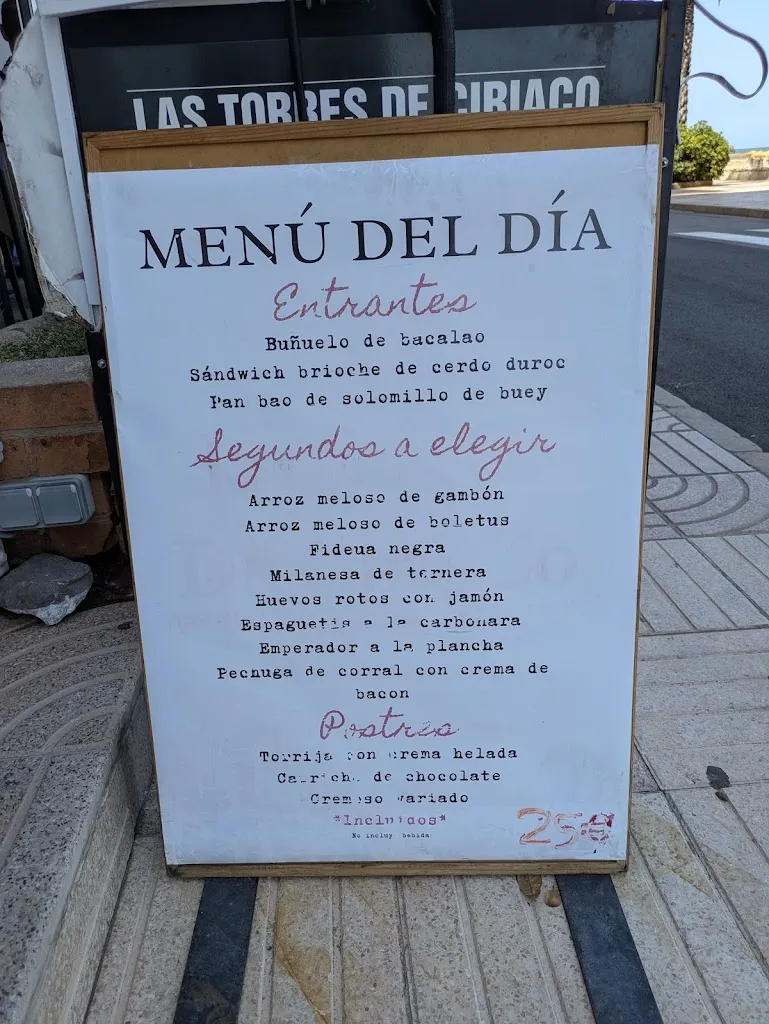 LAS TORRES DE CIRIACO
MENÚ DEL DÍA
Entrantes
Buñuelo de bacalao
Sándwich brioche de cerdo duroc
Pan bao de solomillo de buey
Segundos a elegir
Arroz meloso de gambón
Arroz meloso de boletus
Fideua negra
Milanesa de ternera
Huevos rotos con jamón
Espaguetis a la carbonara
Emperador a la plancha
Pechuga de corral con crema de
bacon
Postres
Torrija con crema helada
Capricho de chocolate
Cremoso variado
*Incluidos*
No incluye bebida
25€